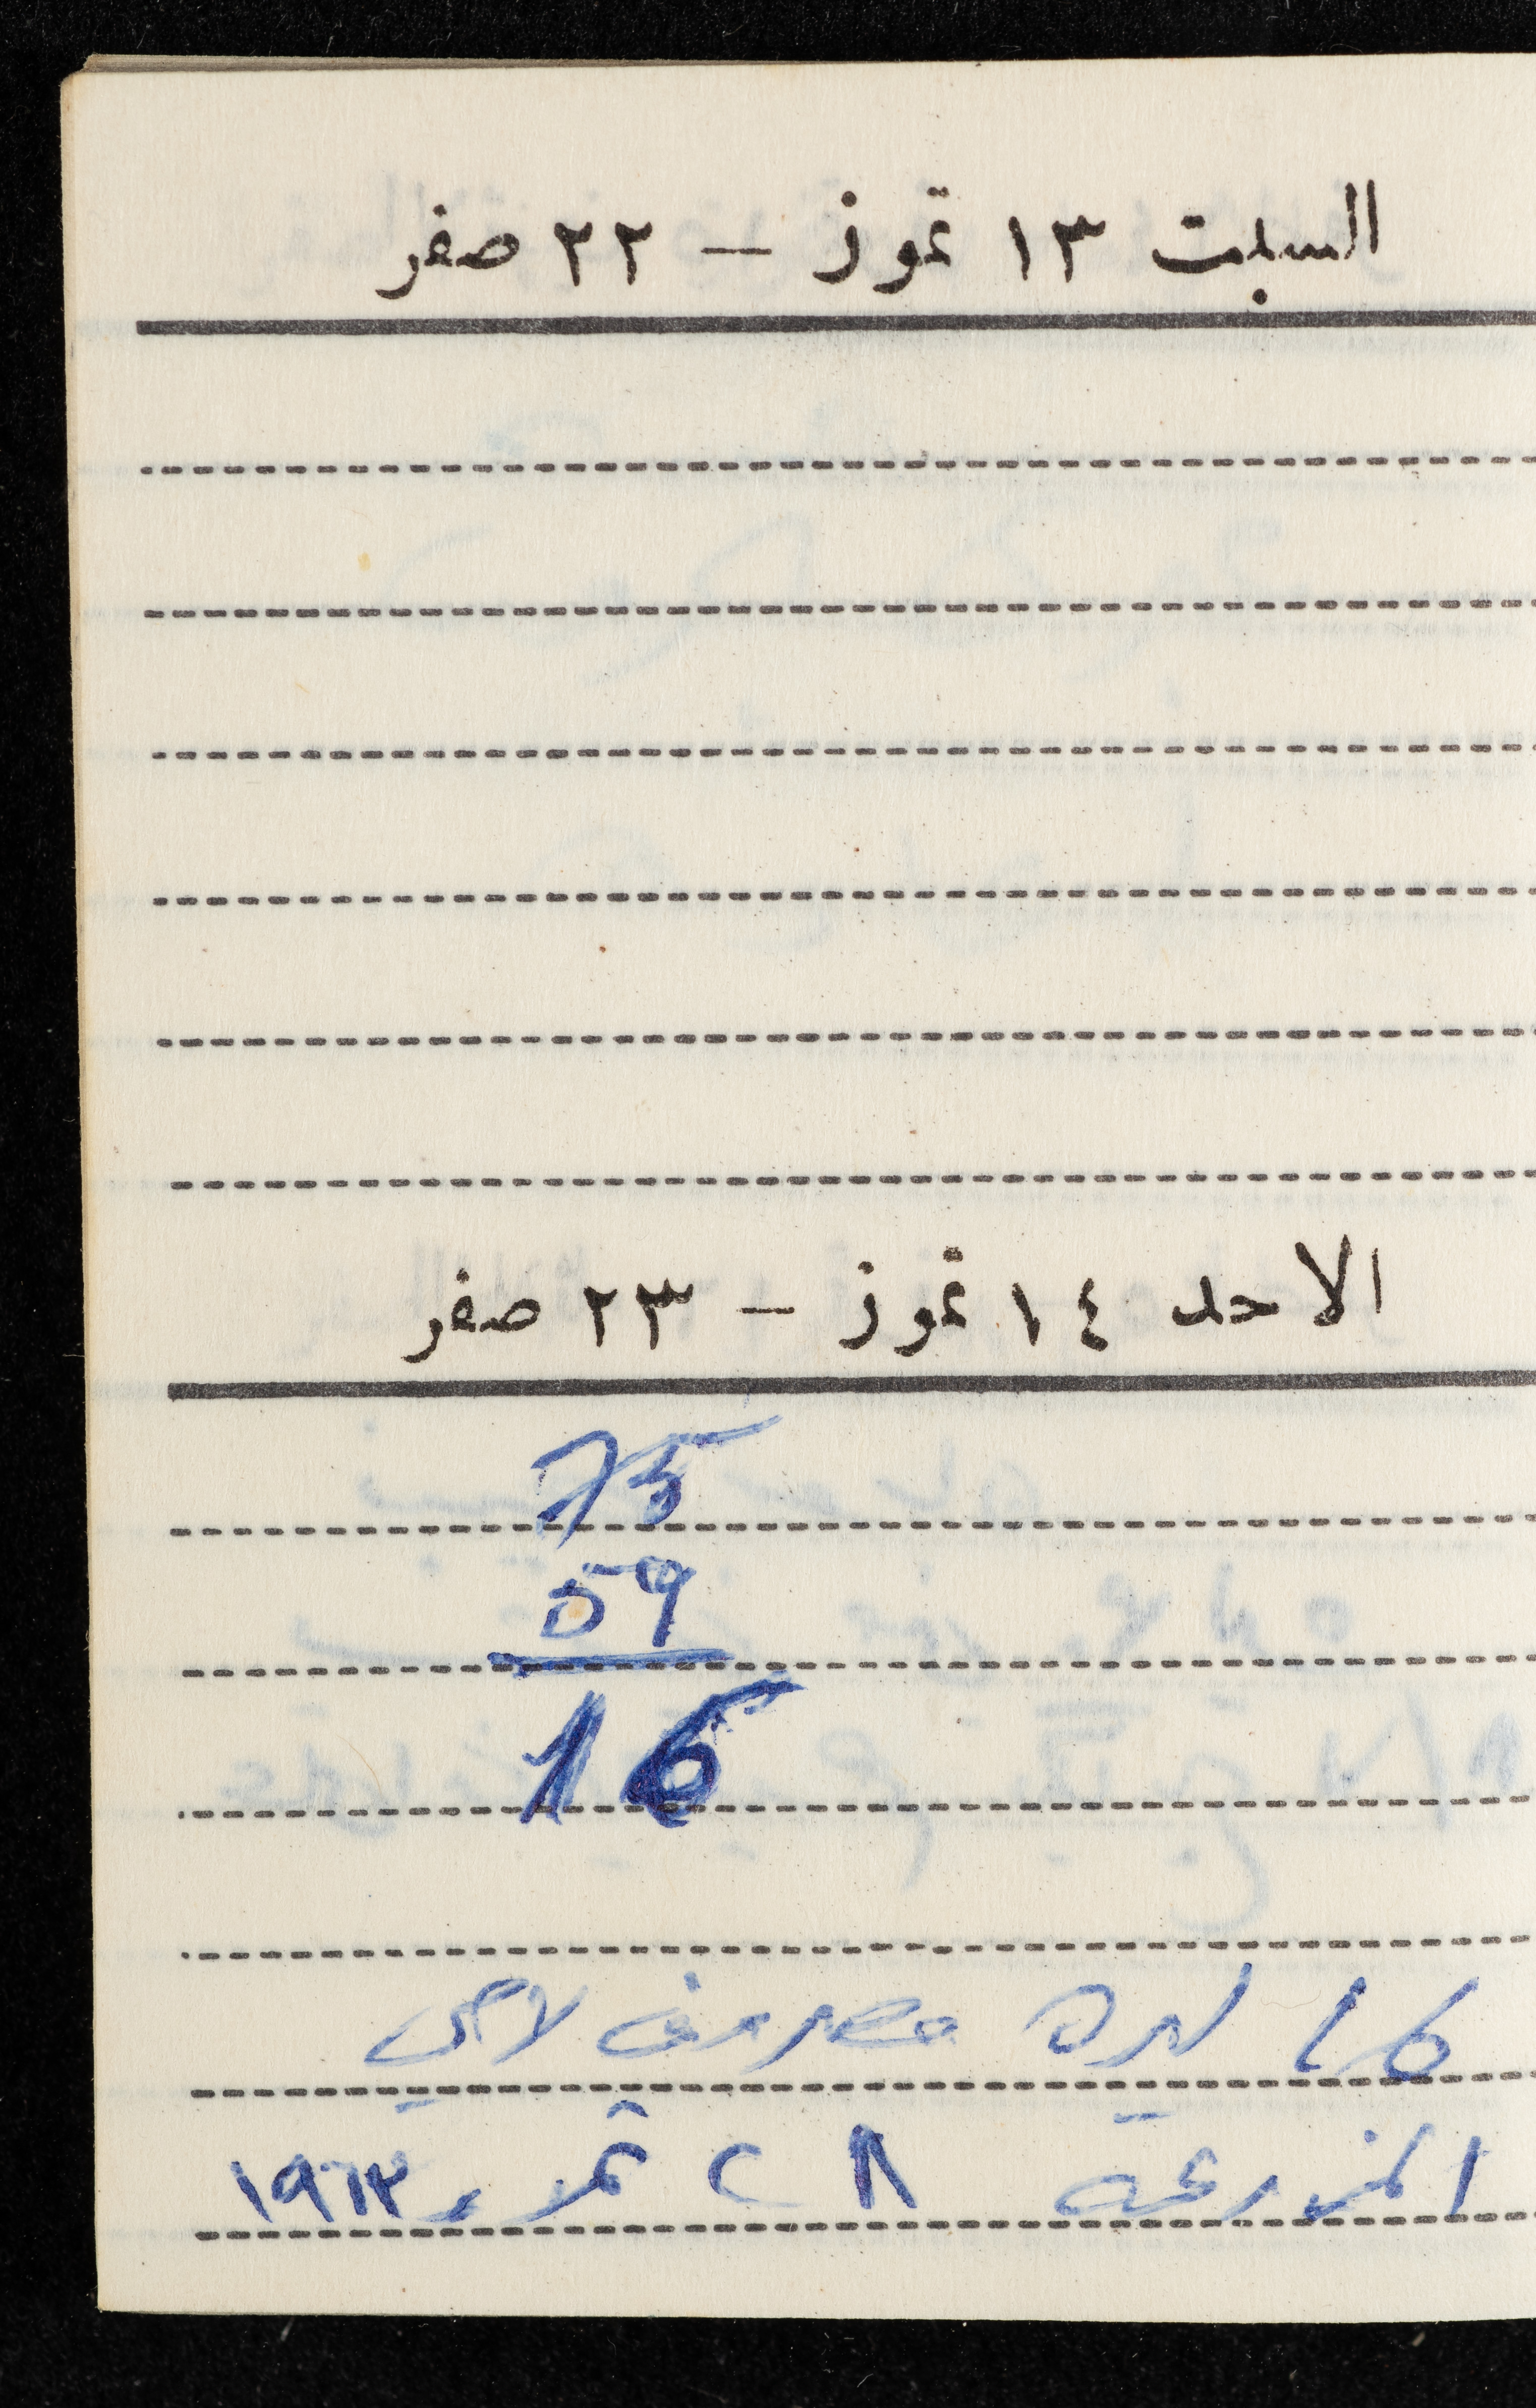 السبت ١٣ تموز – ٢٢ صفر
الاحد ١٤ تموز – ٢٣ صفر
75
59
16
16 ليره مصروف لامي
المزرعة ٢٨ تموز ١٩٦٣